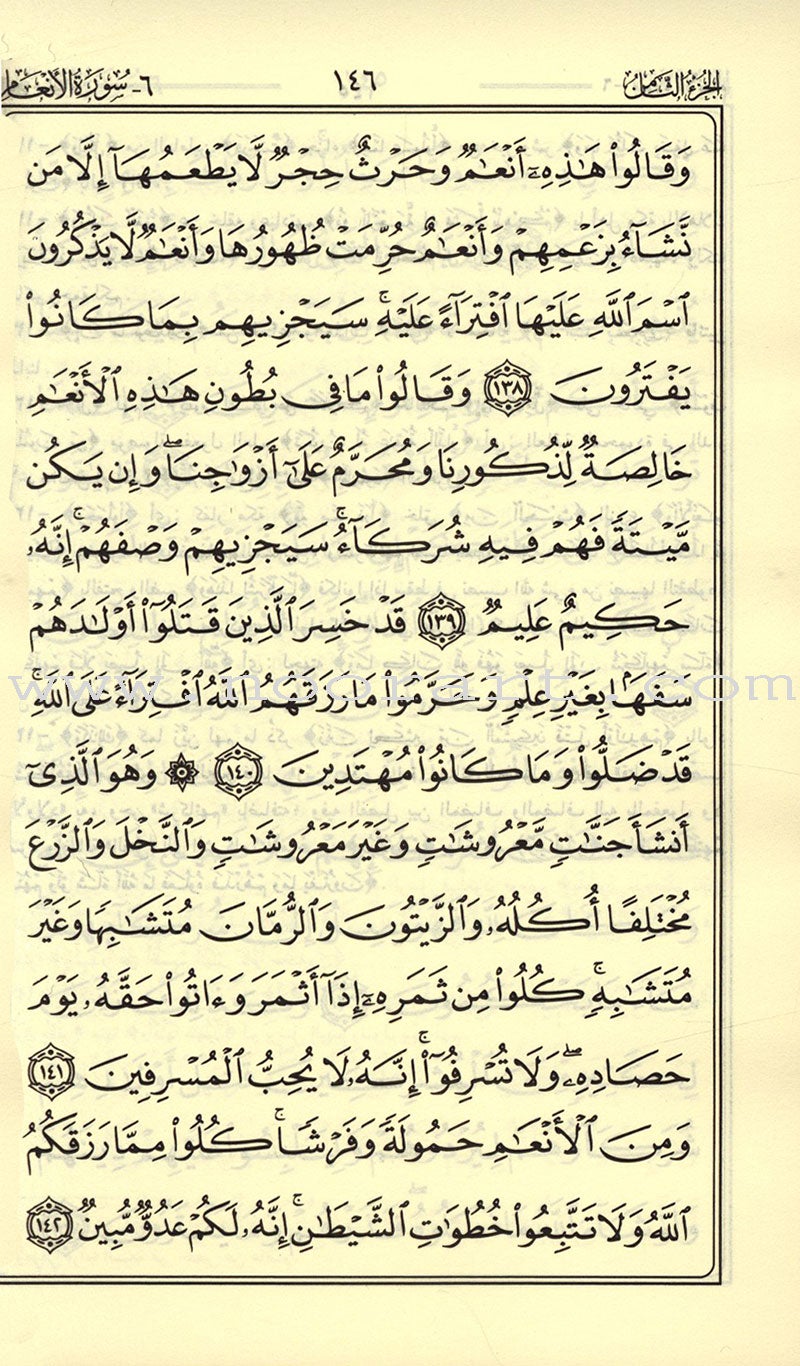 الجزء الثامن ١٤٦ ٦- سورة الأنعام
وَقَالُوا۟ هَٰذِهِۦٓ أَنْعَٰمٌ وَحَرْثٌ حِجْرٌ لَّا يَطْعَمُهَآ إِلَّا مَن
نَّشَآءُ بِزَعْمِهِمْ وَأَنْعَٰمٌ حُرِّمَتْ ظُهُورُهَا وَأَنْعَٰمٌ لَّا يَذْكُرُونَ
ٱسْمَ ٱللَّهِ عَلَيْهَا ٱفْتِرَآءً عَلَيْهِ ۚ سَيَجْزِيهِم بِمَا كَانُوا۟
يَفْتَرُونَ ١٣٨ وَقَالُوا۟ مَا فِى بُطُونِ هَٰذِهِ ٱلْأَنْعَٰمِ
خَالِصَةٌ لِّذُكُورِنَا وَمُحَرَّمٌ عَلَىٰٓ أَزْوَٰجِنَا ۖ وَإِن يَكُن
مَّيْتَةً فَهُمْ فِيهِ شُرَكَآءُ ۚ سَيَجْزِيهِمْ وَصْفَهُمْ ۚ إِنَّهُۥ
حَكِيمٌ عَلِيمٌ ١٣٩ قَدْ خَسِرَ ٱلَّذِينَ قَتَلُوٓا۟ أَوْلَٰدَهُمْ
سَفَهًۢا بِغَيْرِ عِلْمٍ وَحَرَّمُوا۟ مَا رَزَقَهُمُ ٱللَّهُ ٱفْتِرَآءً عَلَى ٱللَّهِ ۚ
قَدْ ضَلُّوا۟ وَمَا كَانُوا۟ مُهْتَدِينَ ١٤٠ ۞ وَهُوَ ٱلَّذِىٓ
أَنشَأَ جَنَّٰتٍ مَّعْرُوشَٰتٍ وَغَيْرَ مَعْرُوشَٰتٍ وَٱلنَّخْلَ وَٱلزَّرْعَ
مُخْتَلِفًا أُكُلُهُۥ وَٱلزَّيْتُونَ وَٱلرُّمَّانَ مُتَشَٰبِهًا وَغَيْرَ
مُتَشَٰبِهٍ ۚ كُلُوا۟ مِن ثَمَرِهِۦٓ إِذَآ أَثْمَرَ وَءَاتُوا۟ حَقَّهُۥ يَوْمَ
حَصَادِهِۦ ۖ وَلَا تُسْرِفُوٓا۟ ۚ إِنَّهُۥ لَا يُحِبُّ ٱلْمُسْرِفِينَ ١٤١
وَمِنَ ٱلْأَنْعَٰمِ حَمُولَةً وَفَرْشًا ۚ كُلُوا۟ مِمَّا رَزَقَكُمُ
ٱللَّهُ وَلَا تَتَّبِعُوا۟ خُطُوَٰتِ ٱلشَّيْطَٰنِ ۚ إِنَّهُۥ لَكُمْ عَدُوٌّ مُّبِينٌ ١٤٢